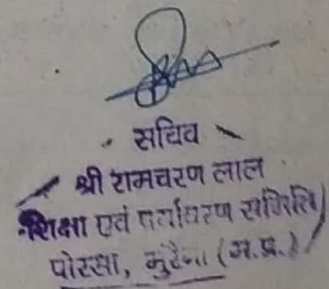 सचिव
श्री रामचरण लाल
शिक्षा एवं पर्यावरण समिति
पोरसा, मुरैना (म.प्र.)